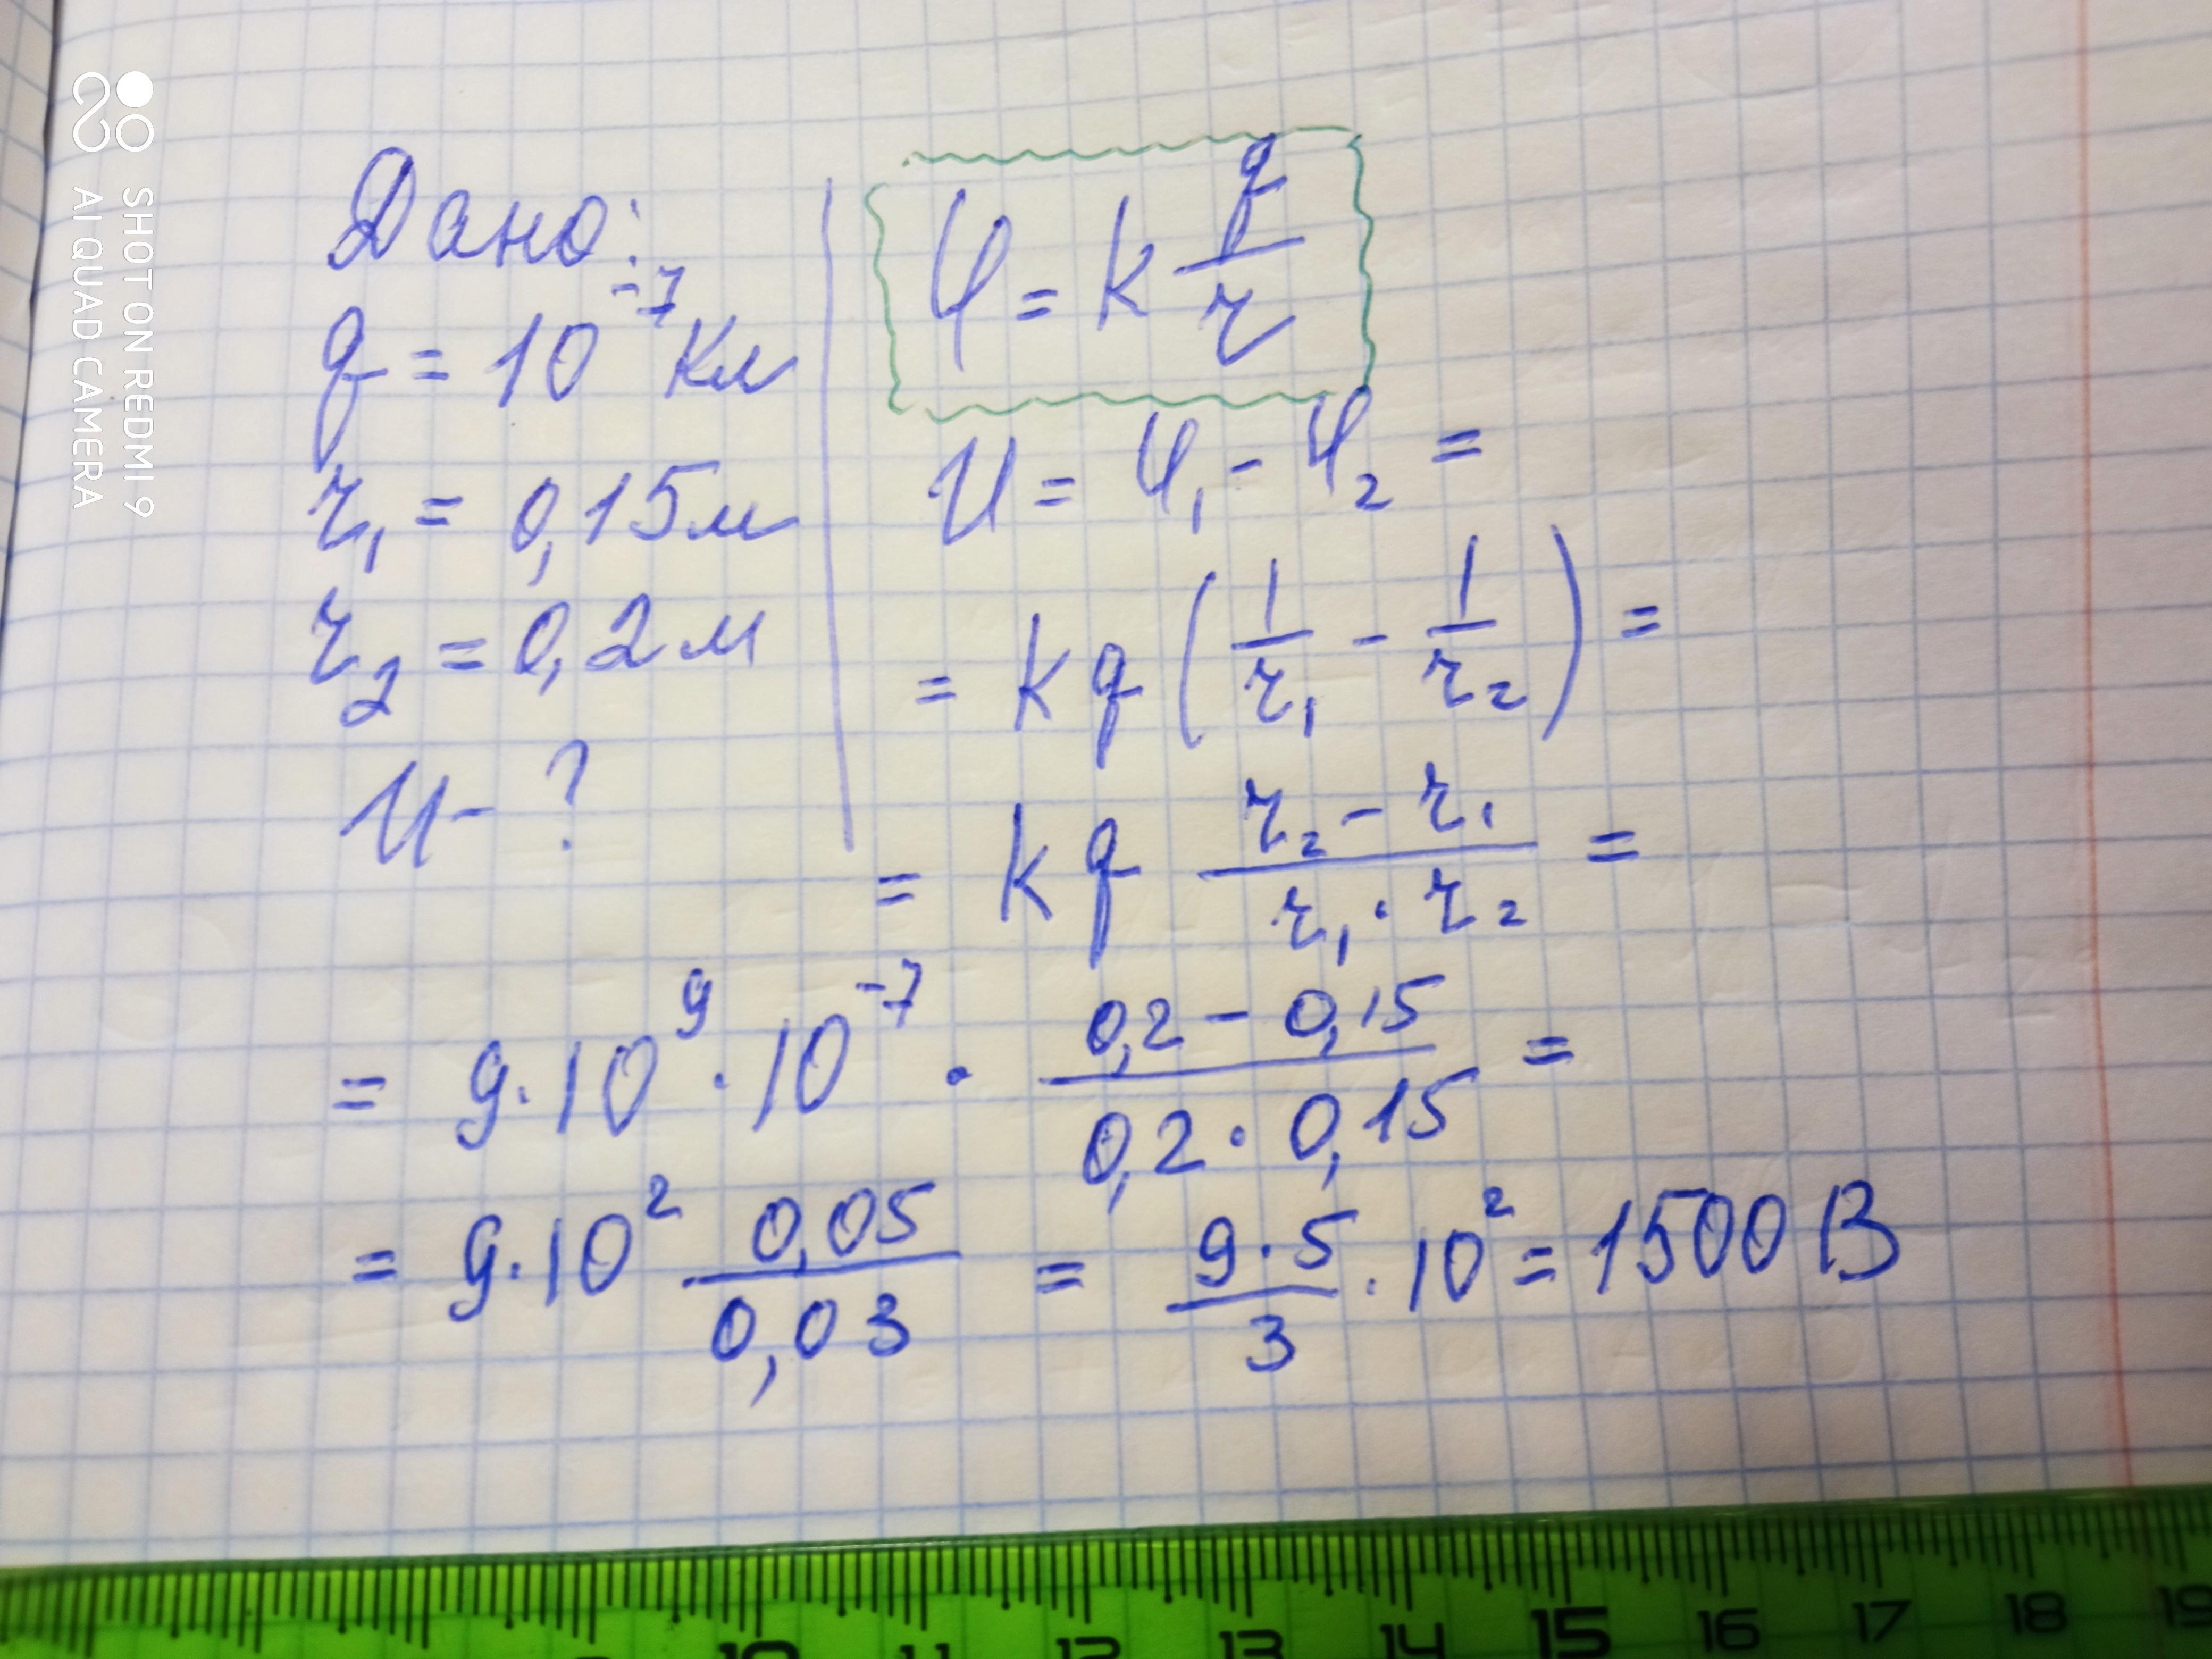 SHOT ON REDMI 9
AI QUAD CAMERA
Дано:
q = 10⁻⁷ Кл
r₁ = 0,15 м
r₂ = 0,2 м
U - ?
φ = k q/r
U = φ₁ - φ₂ =
= kq (1/r₁ - 1/r₂) =
= kq (r₂ - r₁)/(r₁ · r₂) =
= 9·10⁹ · 10⁻⁷ · (0,2 - 0,15)/(0,2 · 0,15) =
= 9·10² 0,05/0,03 = (9·5)/3 · 10² = 1500 В
10 11 12 13 14 15 16 17 18 19